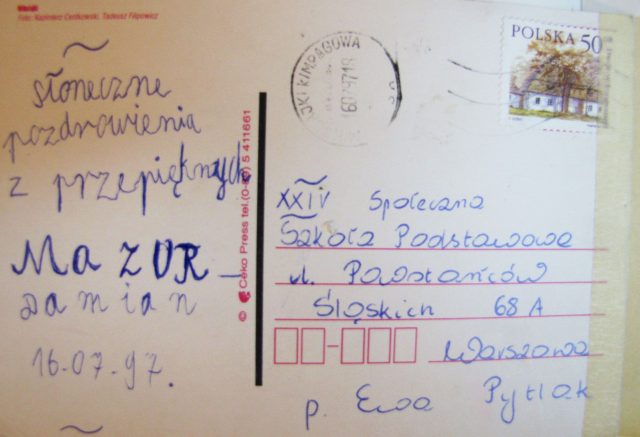 Foto: Kazimierz Cenfkowski, Tadeusz Filipowicz
słoneczne
pozdrowienia
z przepięknych
MaZUR
Damian
16.07.97.
© Ceko Press tel.(0-89) 5 411661
16079718
POLSKA 50
XXIV Społeczna
Szkoła Podstawowa
ul. Powstańców
Śląskich 68 A
Warszawa
p. Ewa Pytlak